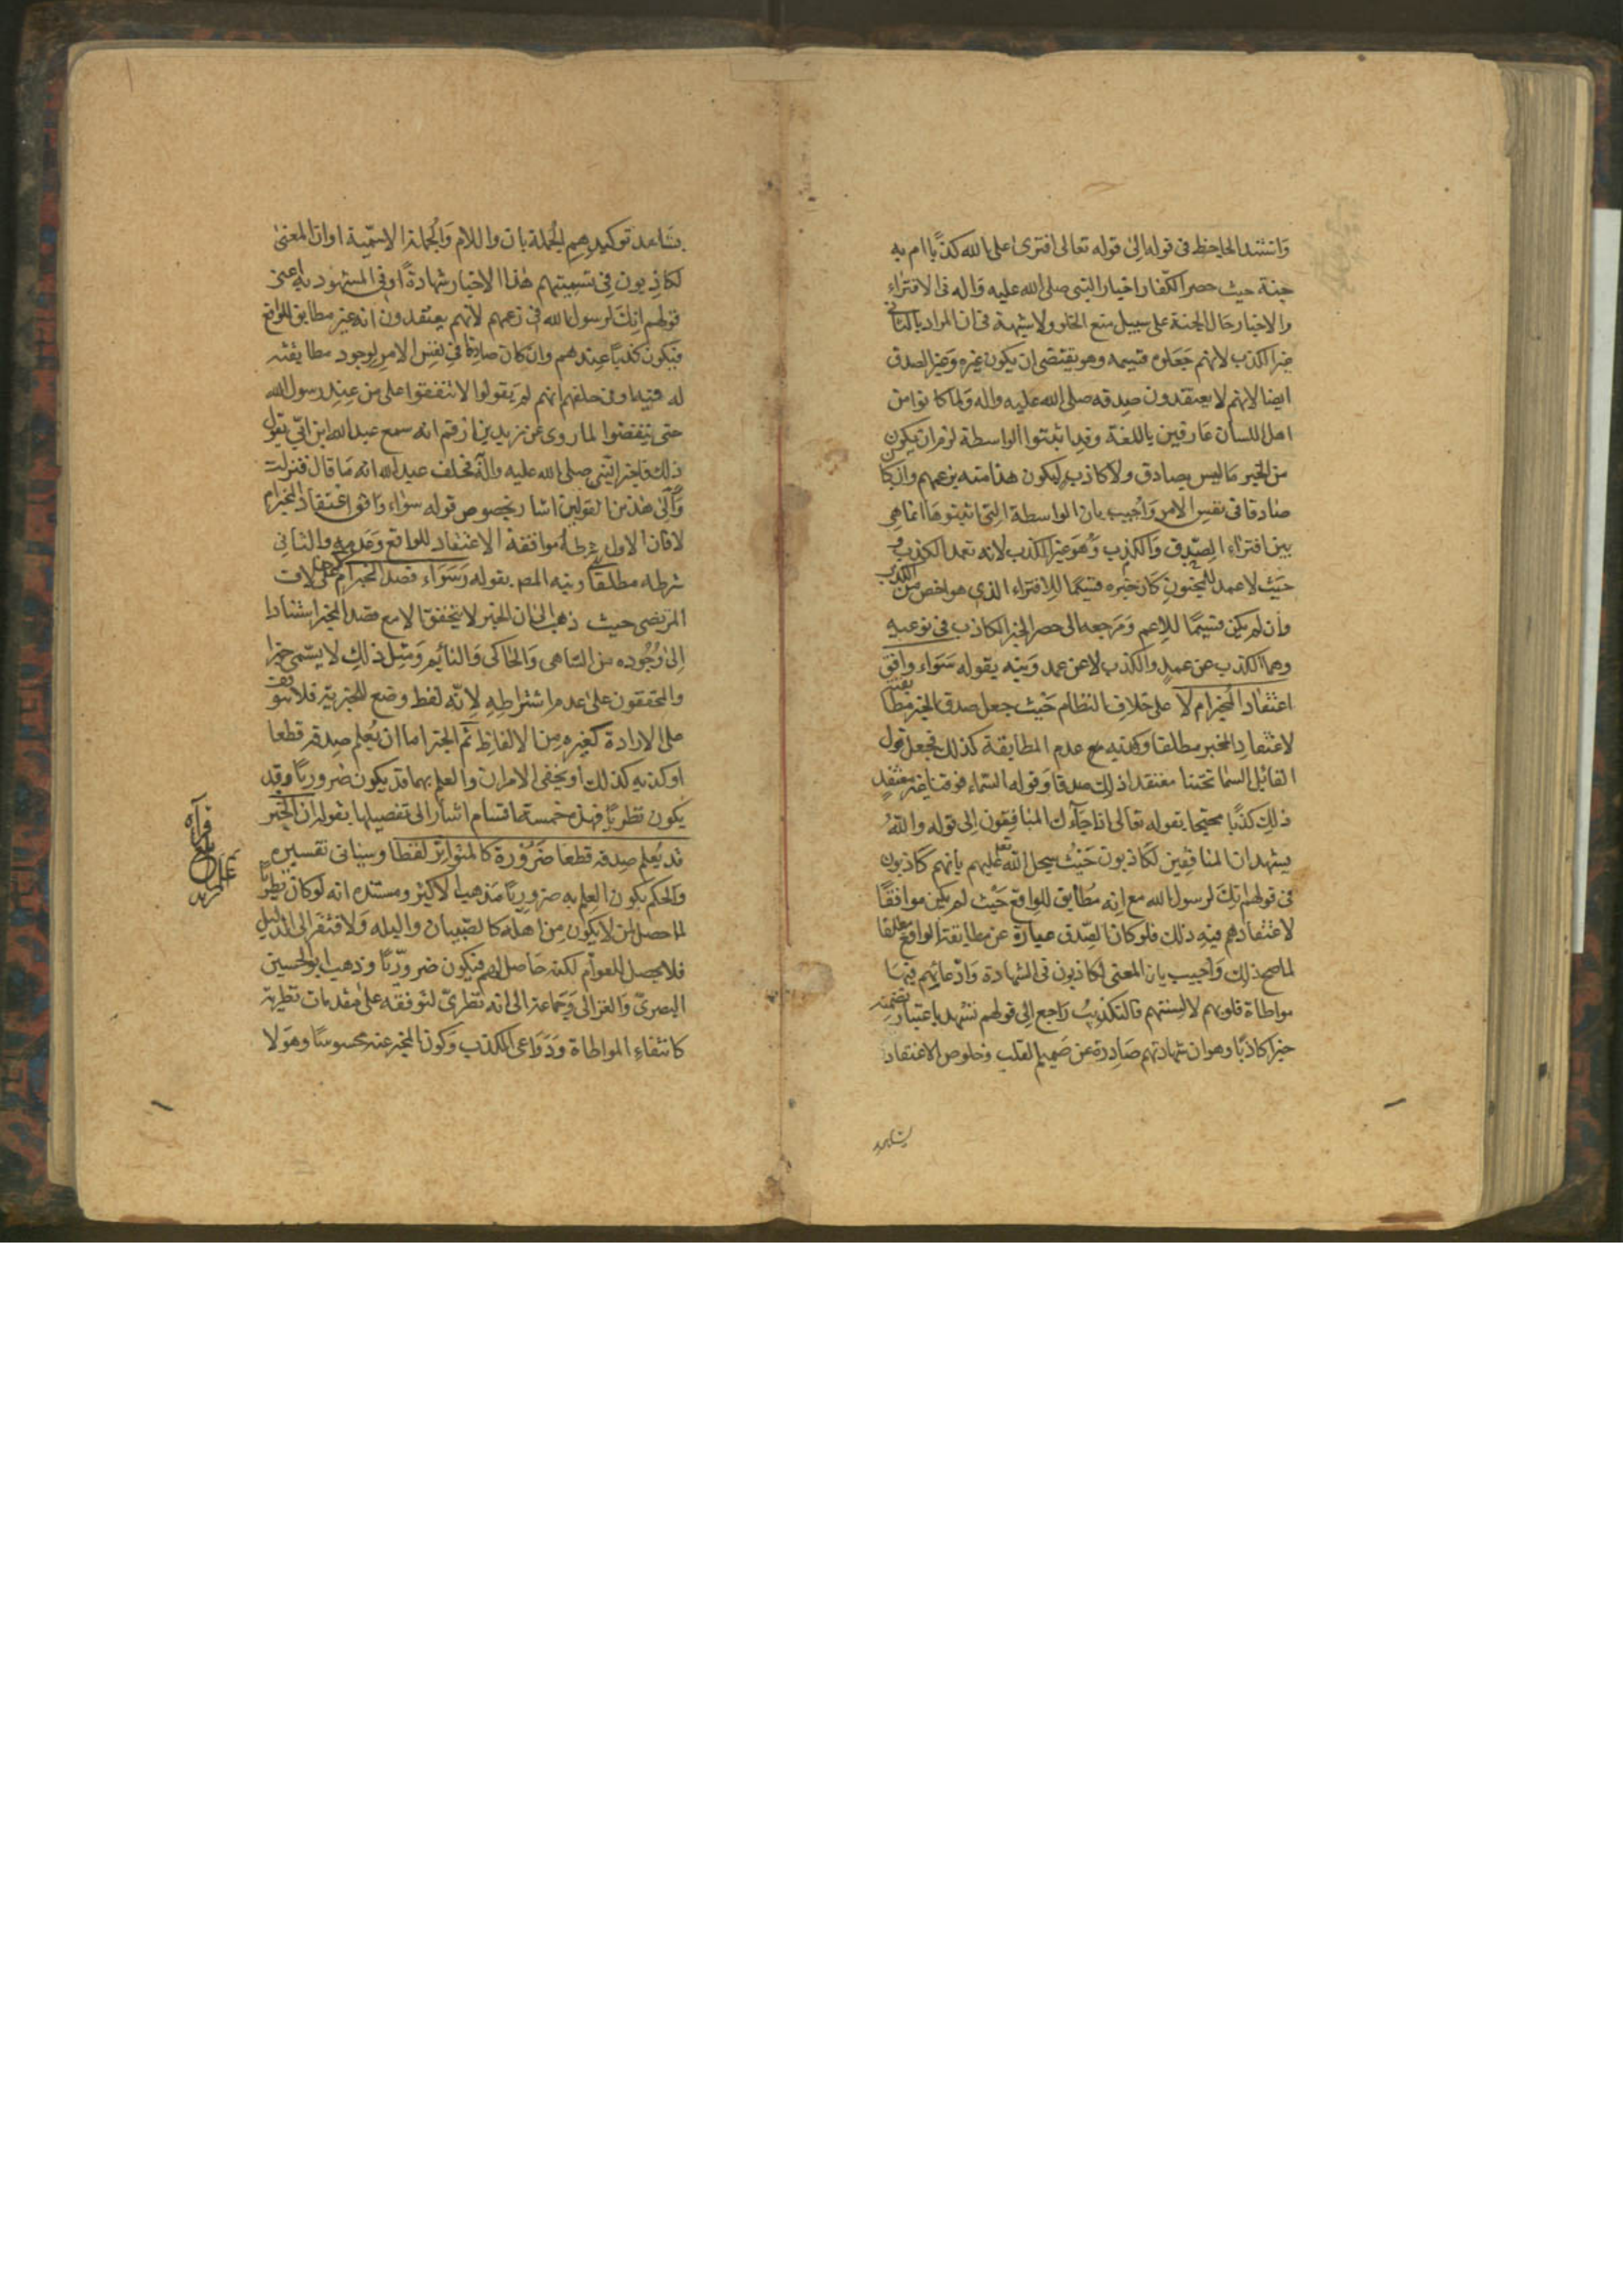 واستند الجاحظ فی قوله الی قوله تعالی افتری علی الله کذبًا ام به
جنة حیث حصر الکفار اخبار النبی صلی الله علیه واله فی الافتراء
والاخبار حال الجنة علی سبیل منع الخلو ولا شبهة فی ان المراد بالثانی
غیر الکذب لانهم جعلوه قسیمه وهو یقتضی ان یکون غیره وغیر الصدق
ایضا لانهم لا یعتقدون صدقه صلی الله علیه واله ولما کانوا من
اهل اللسان عارفین باللغة وقد اثبتوا الواسطة لزم ان یکون
من الخبر ما لیس بصادق ولا کاذب لیکون هذا منه بزعمهم وان کا
صادقا فی نفس الامر واجیب بان الواسطة التی اثبتوها انما هی
بین افتراء الصدق والکذب وهو غیر الکذب لانه تعمد الکذب و
حیث لا عمد للمجنون کان خبره قسیمًا للافتراء الذی هو اخص من الکذب
وان لم یکن قسیمًا للاعم ومرجعه الی حصر الخبر الکاذب فی نوعیه
وهما الکذب عن عمد والکذب لا عن عمد ونبه بقوله سواء وافق
اعتقاد المخبر ام لا علی خلاف النظام حیث جعل صدق الخبر مطابقته
لاعتقاد المخبر مطلقا وکذبه عدم المطابقة کذلک فجعل قول
القائل السما تحتنا معتقدا ذلک صدقا وقوله السماء فوقنا غیر معتقد
ذلک کذبًا محتجا بقوله تعالی اذا جآءک المنافقون الی قوله والله
یشهد ان المنافقین لکاذبون حیث سجل الله تعالی علیهم بانهم کاذبون
فی قولهم انک لرسول الله مع انه مطابق للواقع حیث لم یکن موافقًا
لاعتقادهم فیه ذلک فلو کان الصدق عبارة عن مطابقة الواقع مطلقا
لما صح ذلک واجیب بان المعنی لکاذبون فی الشهادة وادعائهم فیها
مواطاة قلوبهم لالسنتهم فالتکذیب راجع الی قولهم نشهد باعتبار تضمنه
خبرا کاذبًا وهو ان شهادتهم صادرة عن صمیم القلب وخلوص الاعتقاد
بشاهد
بشاهد توکیدهم الجملة بان واللام والجملة الاسمیة او ان المعنی
لکاذبون فی تسمیتهم هذا الاخبار شهادةً او فی المشهود به اعنی
قولهم انک لرسول الله فی زعمهم لانهم یعتقدون انه غیر مطابق للواقع
فیکون کذبًا عندهم وان کان صادقا فی نفس الامر لوجود مطابقته
له فیه او فی حلفهم انهم لم یقولوا لا تنفقوا علی من عند رسول الله
حتی ینفضوا لما روی عن زید بن ارقم انه سمع عبد الله ابن ابی یقول
ذلک فاخبر النبی صلی الله علیه واله فحلف عبد الله انه ما قال فنزلت
والی هذین القولین اشار بخصوص قوله سواء وافق اعتقاد المخبر ام
لا فان الاول شرط موافقة الاعتقاد للواقع وعدمه والثانی
شرطه مطلقا ونبه المص بقوله وسواء قصد المخبر ام لا علی خلاف
المرتضی حیث ذهب الی ان الخبر لا یتحقق الا مع قصد المخبر استنادا
الی وجوده من الساهی والحاکی والنائم ومثل ذلک لا یسمی خبرا
والمحققون علی عدم اشتراطه لانه لفظ وضع للخبریة فلا یتوقف
علی الارادة کغیره من الالفاظ ثم الخبر اما ان یعلم صدقه قطعا
او کذبه کذلک او یخفی الامران والعلم بهما قد یکون ضروریًا وقد
یکون نظریًا فهذه خمسة اقسام اشار الی تفصیلها بقوله ان الخبر
قد یعلم صدقه قطعا ضرورة کالمتواتر لفظا وسیاتی تفسیره
والحکم بکون العلم به ضروریًا مذهب الاکثر ومستنده انه لو کان نظریًا
لما حصل لمن لا یکون من اهله کالصبیان والبله ولافتقر الی الدلیل
فلا یحصل للعوام لکنه حاصل لهم فیکون ضروریًا وذهب ابو الحسین
البصری والغزالی وجماعة الی انه نظری لتوقفه علی مقدمات نظریة
کانتفاء المواطاة ودواعی الکذب وکون المخبر عنه محسوسًا وهو لا